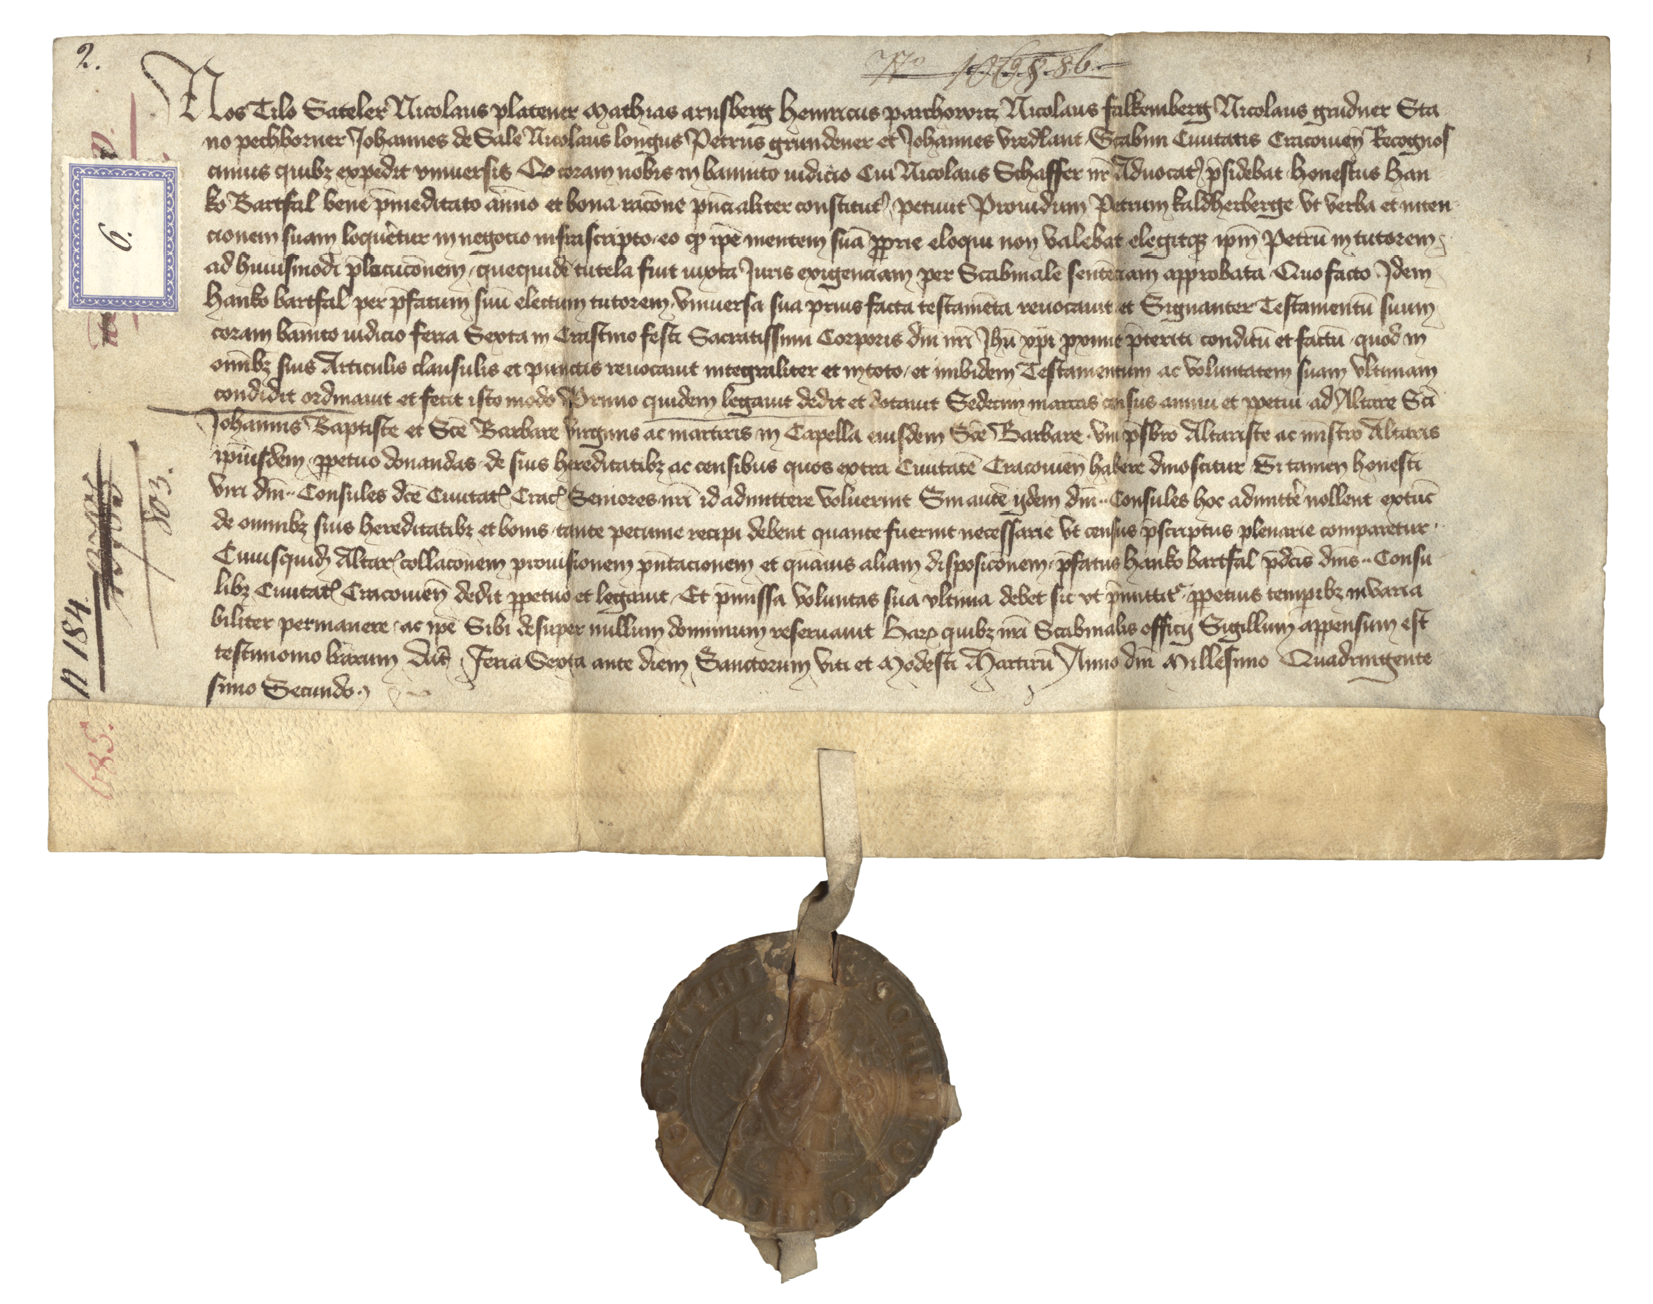 2.
Nos Tilo Sateler Nicolaus platener Mathias arnsberg Henricus parchovitz Nicolaus falkemberg Nicolaus grudner Sta
no pechborner Johannes de Sale Nicolaus longus Petrus grundener et Johannes vredlant Scabini Civitatis Cracovien̄ Recognos
cimus quibȝ expedit vniuersis Qo coram nobis in bannito iudicio Cui Nicolaus Schaffer nr̄ Advocatꝰ p̄sidebat honestus Han
ko Bartfal bene p̄meditato animo et bona rac̄one pn̄cialiter constitutꝰ petiuit Prouidum Petrum kaldherberge vt verba et inten
cionem suam loqueretur in negocio infrascripto eo qꝫ ip̄e mentem suā ꝓprie eloqui non valebat elegitqꝫ ip̄m Petrū in tutorem
ad huiusmodi p̄locuc̄onem quequidē tutela fuit iuxta Juris exigenciam per Scabinale sentēciam approbata Quo facto Idem
Hanko bartfal per p̄fatum suū electum tutorem vniuersa sua prius facta testamēta reuocauit et Signanter Testamentū suum
coram bānito iudicio feria Sexta in Crastino festi Sacratissimi Corporis dn̄i nr̄i Jhū xp̄i proxime p̄teriti conditū et factū quod in
omībȝ suis Articulis clausulis et punctis reuocauit integraliter et in toto et inibidem Testamentum ac voluntatem suam vltimam
condidit ordinauit et fecit isto modo Primo quidem legauit dedit et dotauit Sedecim marcas census annui et ꝑpetui ad Altare Sc̄i
Johannis Baptiste et Sc̄e Barbare virginis ac martiris in Capella eiusdem Sc̄e Barbare vni p̄sbro Altariste ac mīstro Altaris
ip̄iusdem ꝑpetuo donandas de suis hereditatibȝ ac censibus quos extra Ciuitatē Cracouien̄ habere dinoscitur Si tamen honesti
viri dn̄i Consules dc̄e Ciuitatꝭ Cracꝭ Seniores nr̄i id admittere voluerint Sin autē ijdem dn̄i Consules hoc admittē nollent extūc
de omnibȝ suis hereditatibȝ et bonis tante pecunie recipi debent quante fuerint necessarie vt census p̄scriptus plenarie comparetur
Cuiusquidē Altarꝭ collac̄onem prouisionem pn̄tacionem et quāuis aliam disposic̄onem p̄fatus hanko bartfal p̄dc̄is dn̄is Consu
libȝ Ciuitatꝭ Cracouien̄ dedit ꝑpetuo et legauit Et p̄missa voluntas sua vltima debet sic vt p̄mittitr ꝑpetuis temp̄ibȝ inuaria
biliter permanere ac ip̄e Sibi desuper nullum dominium reseruauit Harꝝ quibȝ nr̄i Scabinalis officij Sigillum appensum est
testimonio lrārum Datꝭ Feria Sexta ante diem Sanctorum viti et Modesti Martirū Anno dn̄i Millesimo Quadringente
simo Secundo
6.
803.
n 184
685.